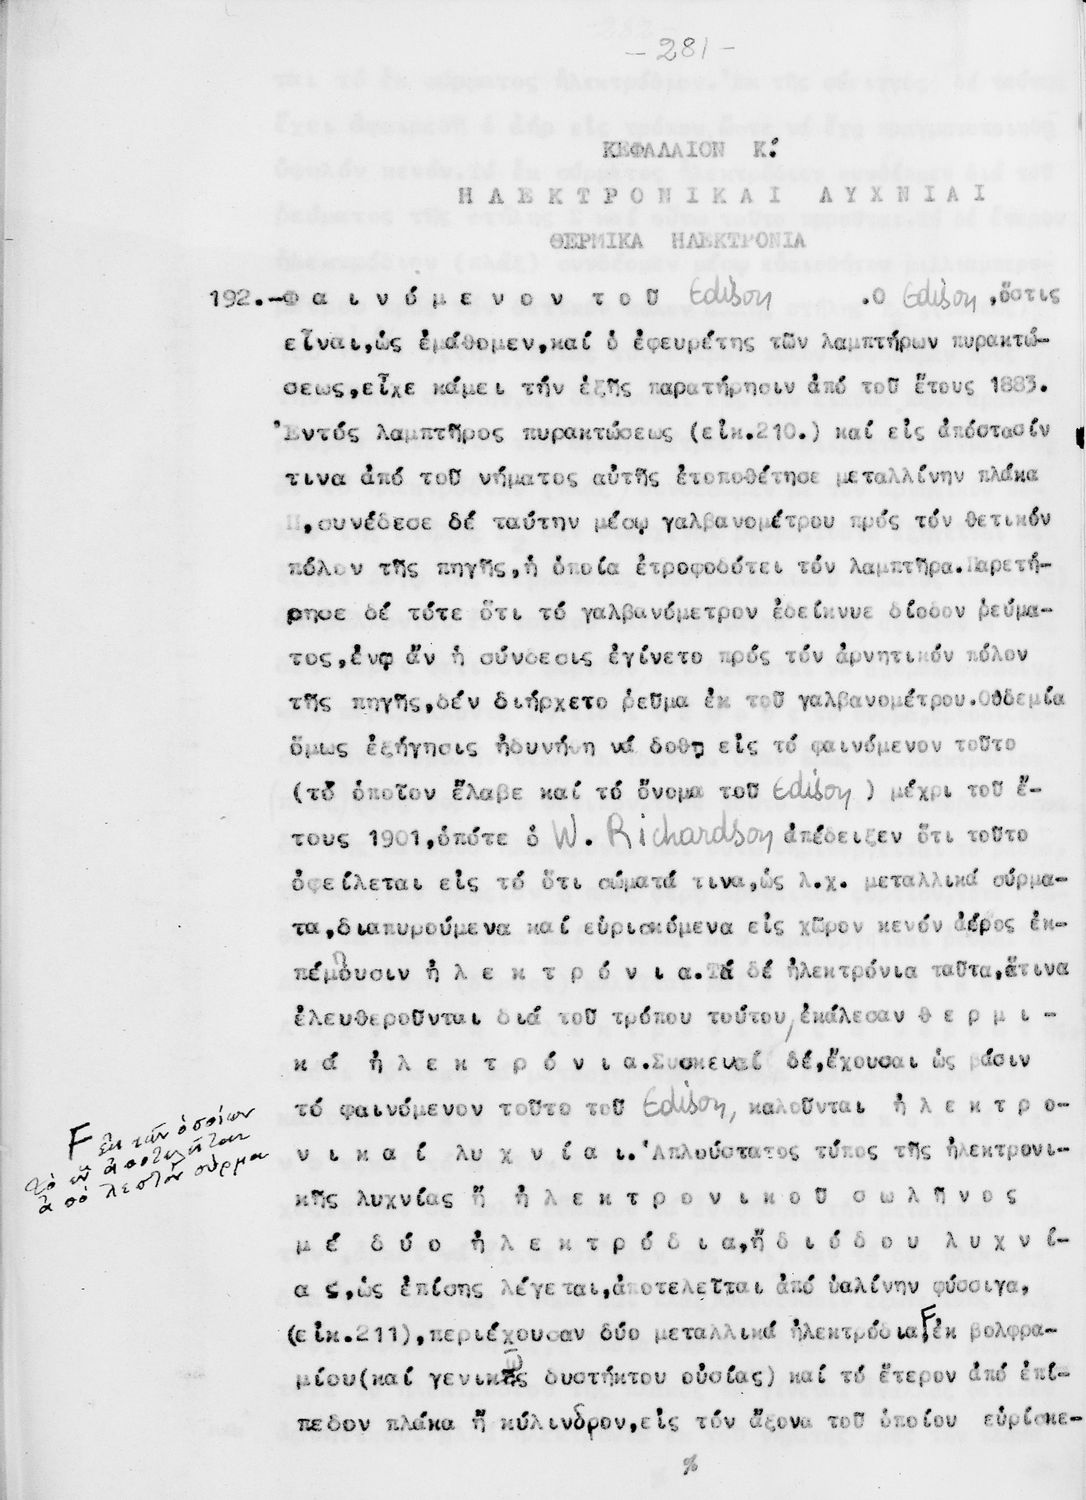 - 281 -
ΚΕΦΑΛΑΙΟΝ Κ΄.
ΗΛΕΚΤΡΟΝΙΚΑΙ ΛΥΧΝΙΑΙ
ΘΕΡΜΙΚΑ ΗΛΕΚΤΡΟΝΙΑ
192.-Φαινόμενον τοῦ Edison .Ο Edison,ὅστις
εἶναι,ὡς ἐμάθομεν,καί ὁ ἐφευρέτης τῶν λαμπτήρων πυρακτώ-
σεως,εἶχε κάμει τήν ἑξῆς παρατήρησιν ἀπό τοῦ ἔτους 1883.
Ἐντός λαμπτῆρος πυρακτώσεως (εἰκ.210.) καί εἰς ἀπόστασίν
τινα ἀπό τοῦ νήματος αὐτῆς ἐτοποθέτησε μεταλλίνην πλάκα
Π,συνέδεσε δέ ταύτην μέσῳ γαλβανομέτρου πρός τόν θετικόν
πόλον τῆς πηγῆς,ἡ ὁποία ἐτροφοδότει τόν λαμπτῆρα.Παρετή-
ρησε δέ τότε ὅτι τό γαλβανόμετρον ἐδείκνυε δίοδον ῥεύμα-
τος,ἐνῳ ἄν ἡ σύνδεσις ἐγίνετο πρός τόν ἀρνητικόν πόλον
τῆς πηγῆς,δέν διήρχετο ῥεῦμα ἐκ τοῦ γαλβανομέτρου.Οὐδεμία
ὅμως ἐξήγησις ἠδυνήθη νά δοθῃ εἰς τό φαινόμενον τοῦτο
(τό ὁποῖον ἔλαβε καί τό ὄνομα τοῦ Edison) μέχρι τοῦ ἔ-
τους 1901,ὁπότε ὁ W. Richardson ἀπέδειξεν ὅτι τοῦτο
ὀφείλεται εἰς τό ὅτι σώματά τινα,ὡς λ.χ. μεταλλικά σύρμα-
τα,διαπυρούμενα καί εὑρισκόμενα εἰς χῶρον κενόν ἀέρος ἐκ-
πέμπουσιν ἠλεκτρόνια.Τά δέ ἠλεκτρόνια ταῦτα,ἅτινα
ἐλευθεροῦνται διά τοῦ τρόπου τούτου,ἐκάλεσαν θερμι-
κά ἠλεκτρόνια.Συσκευαί δέ,ἔχουσαι ὡς βάσιν
τό φαινόμενον τοῦτο τοῦ Edison, καλοῦνται ἠλεκτρο-
νικαί λυχνίαι.Ἁπλούστατος τύπος τῆς ἠλεκτρονι-
κῆς λυχνίας ἤ ἠλεκτρονικοῦ σωλῆνος
μέ δύο ἠλεκτρόδια,ἤ διόδου λυχνί-
ας,ὡς ἐπίσης λέγεται,ἀποτελεῖται ἀπό ὑαλίνην φύσσιγα,
(εἰκ.211),περιέχουσαν δύο μεταλλικά ἠλεκτρόδια,Γἐκ βολφρα-
μίου(καί γενικῶς δυστήκτου οὐσίας) καί τό ἕτερον ἀπό ἐπί-
πεδον πλάκα ἤ κύλινδρον,εἰς τόν ἄξονα τοῦ ὁποίου εὑρίσκε-
Γ ἐκ τῶν ὁποίων
τό ἕν ἀποτελεῖται
ἀπό λεπτόν σύρμα
%